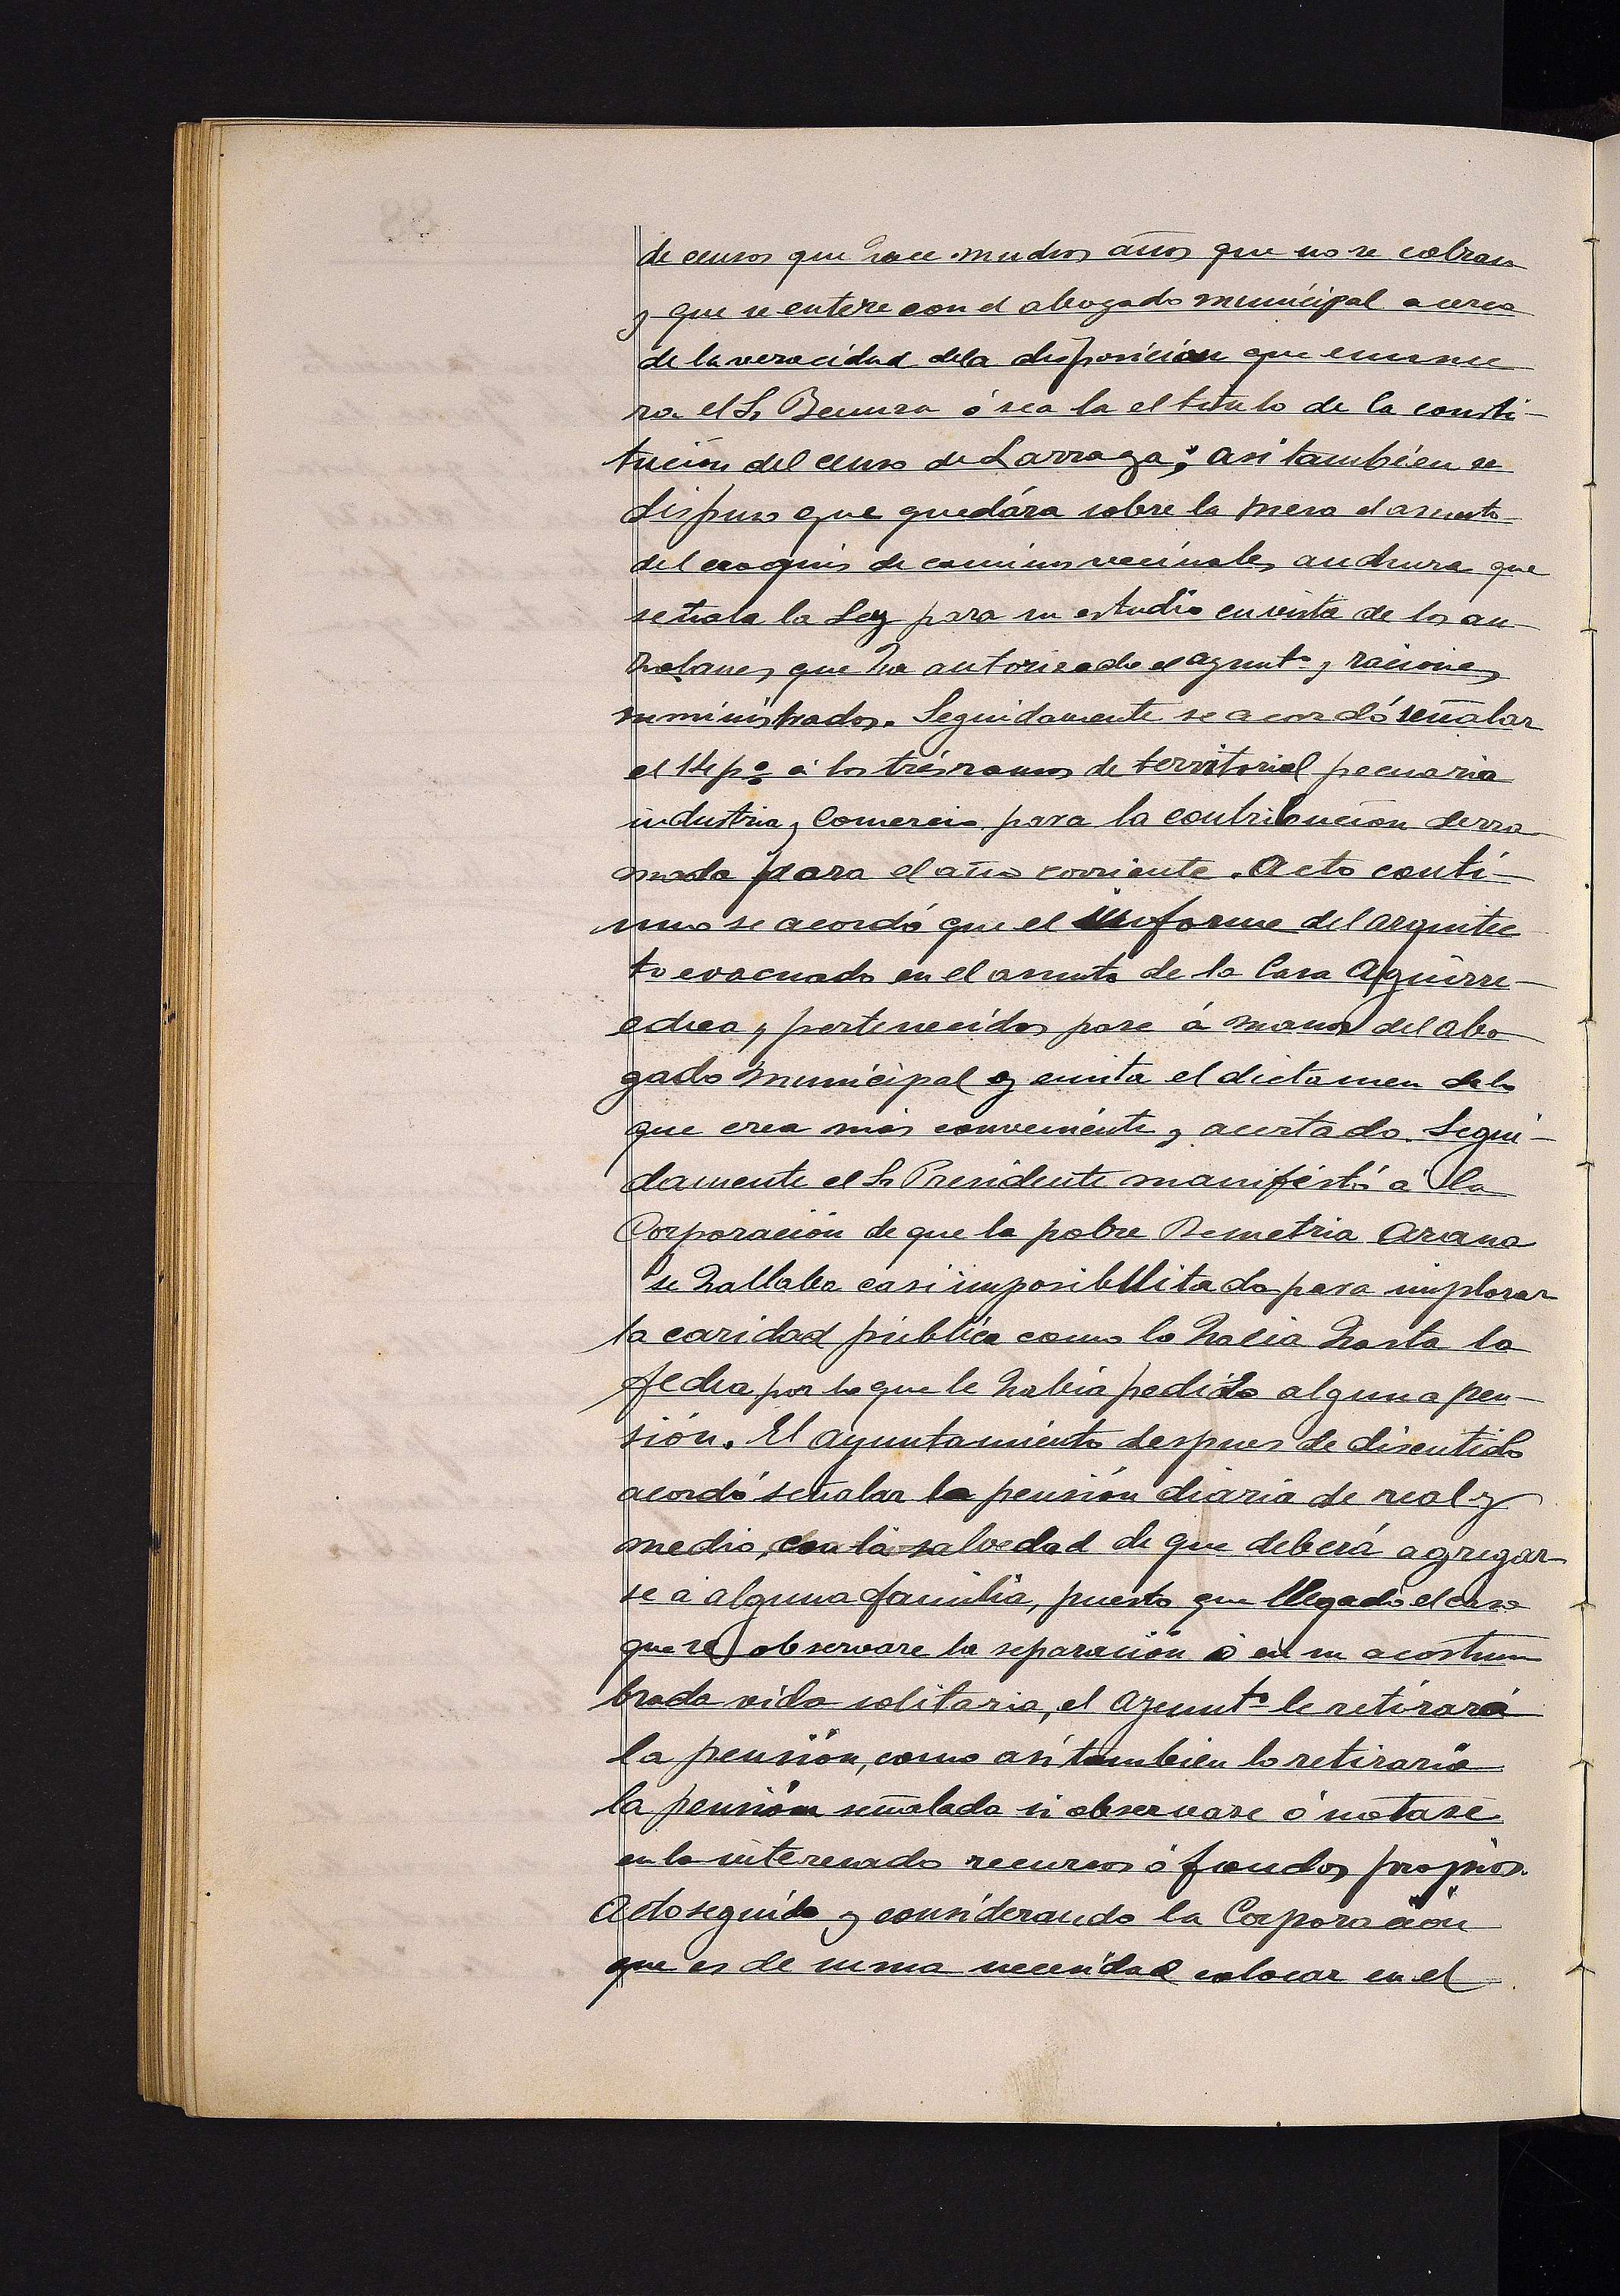 de censos que hace muchos años que no se cobran
y que se entere con el abogado municipal acerca
de la veracidad dela disposicion que enume
ra el Sr Beunza ó sea la el titulo de la consti-
tución del censo de Larraga; asi también se
dispuso que quedára sobre la mesa el asunto
del croquis de caminos vecinales anchura que
señala la Ley para su estudio en vista de los au
zalanes que ha autorizado el ayunto y raciones
suministrados. Seguidamente se acordó señalar
el 14 po á los trés ramos de territorial pecuaria
industria y Comercio para la contribución derra
mada para el año corriente. Acto conti-
nuo se acordó que el informe del arquitec
to evacuado en el asunto de la Casa Aguirre-
echea y pertenecidos pase á manos del abo
gado municipal y emita el dictamen de lo
que crea más conveniente y acertado. Segui-
damente el Sr Presidente manifestó á la
Corporación de que la pobre Demetria Arana
se hallaba casi imposibilitada para implorar
la caridad pública como lo hacia hasta la
fecha por lo que le habia pedido alguna pen-
sión. El ayuntamiento despues de discutido
acordó señalar la pensión diaria de real y
medio, con la salvedad de que deberá agregar
se á alguna familia, puesto que llegado el caso
que se observare la separación ó en su acostum
brada vida solitaria, el ayunto le retirará
la pensión, como asi tambien lo retiraria
la pensión señalada si observase ó notase
en la interesada recursos ó fondos propios.
Acto seguido y considerando la Corporación
que es de suma necesidad colocar en el